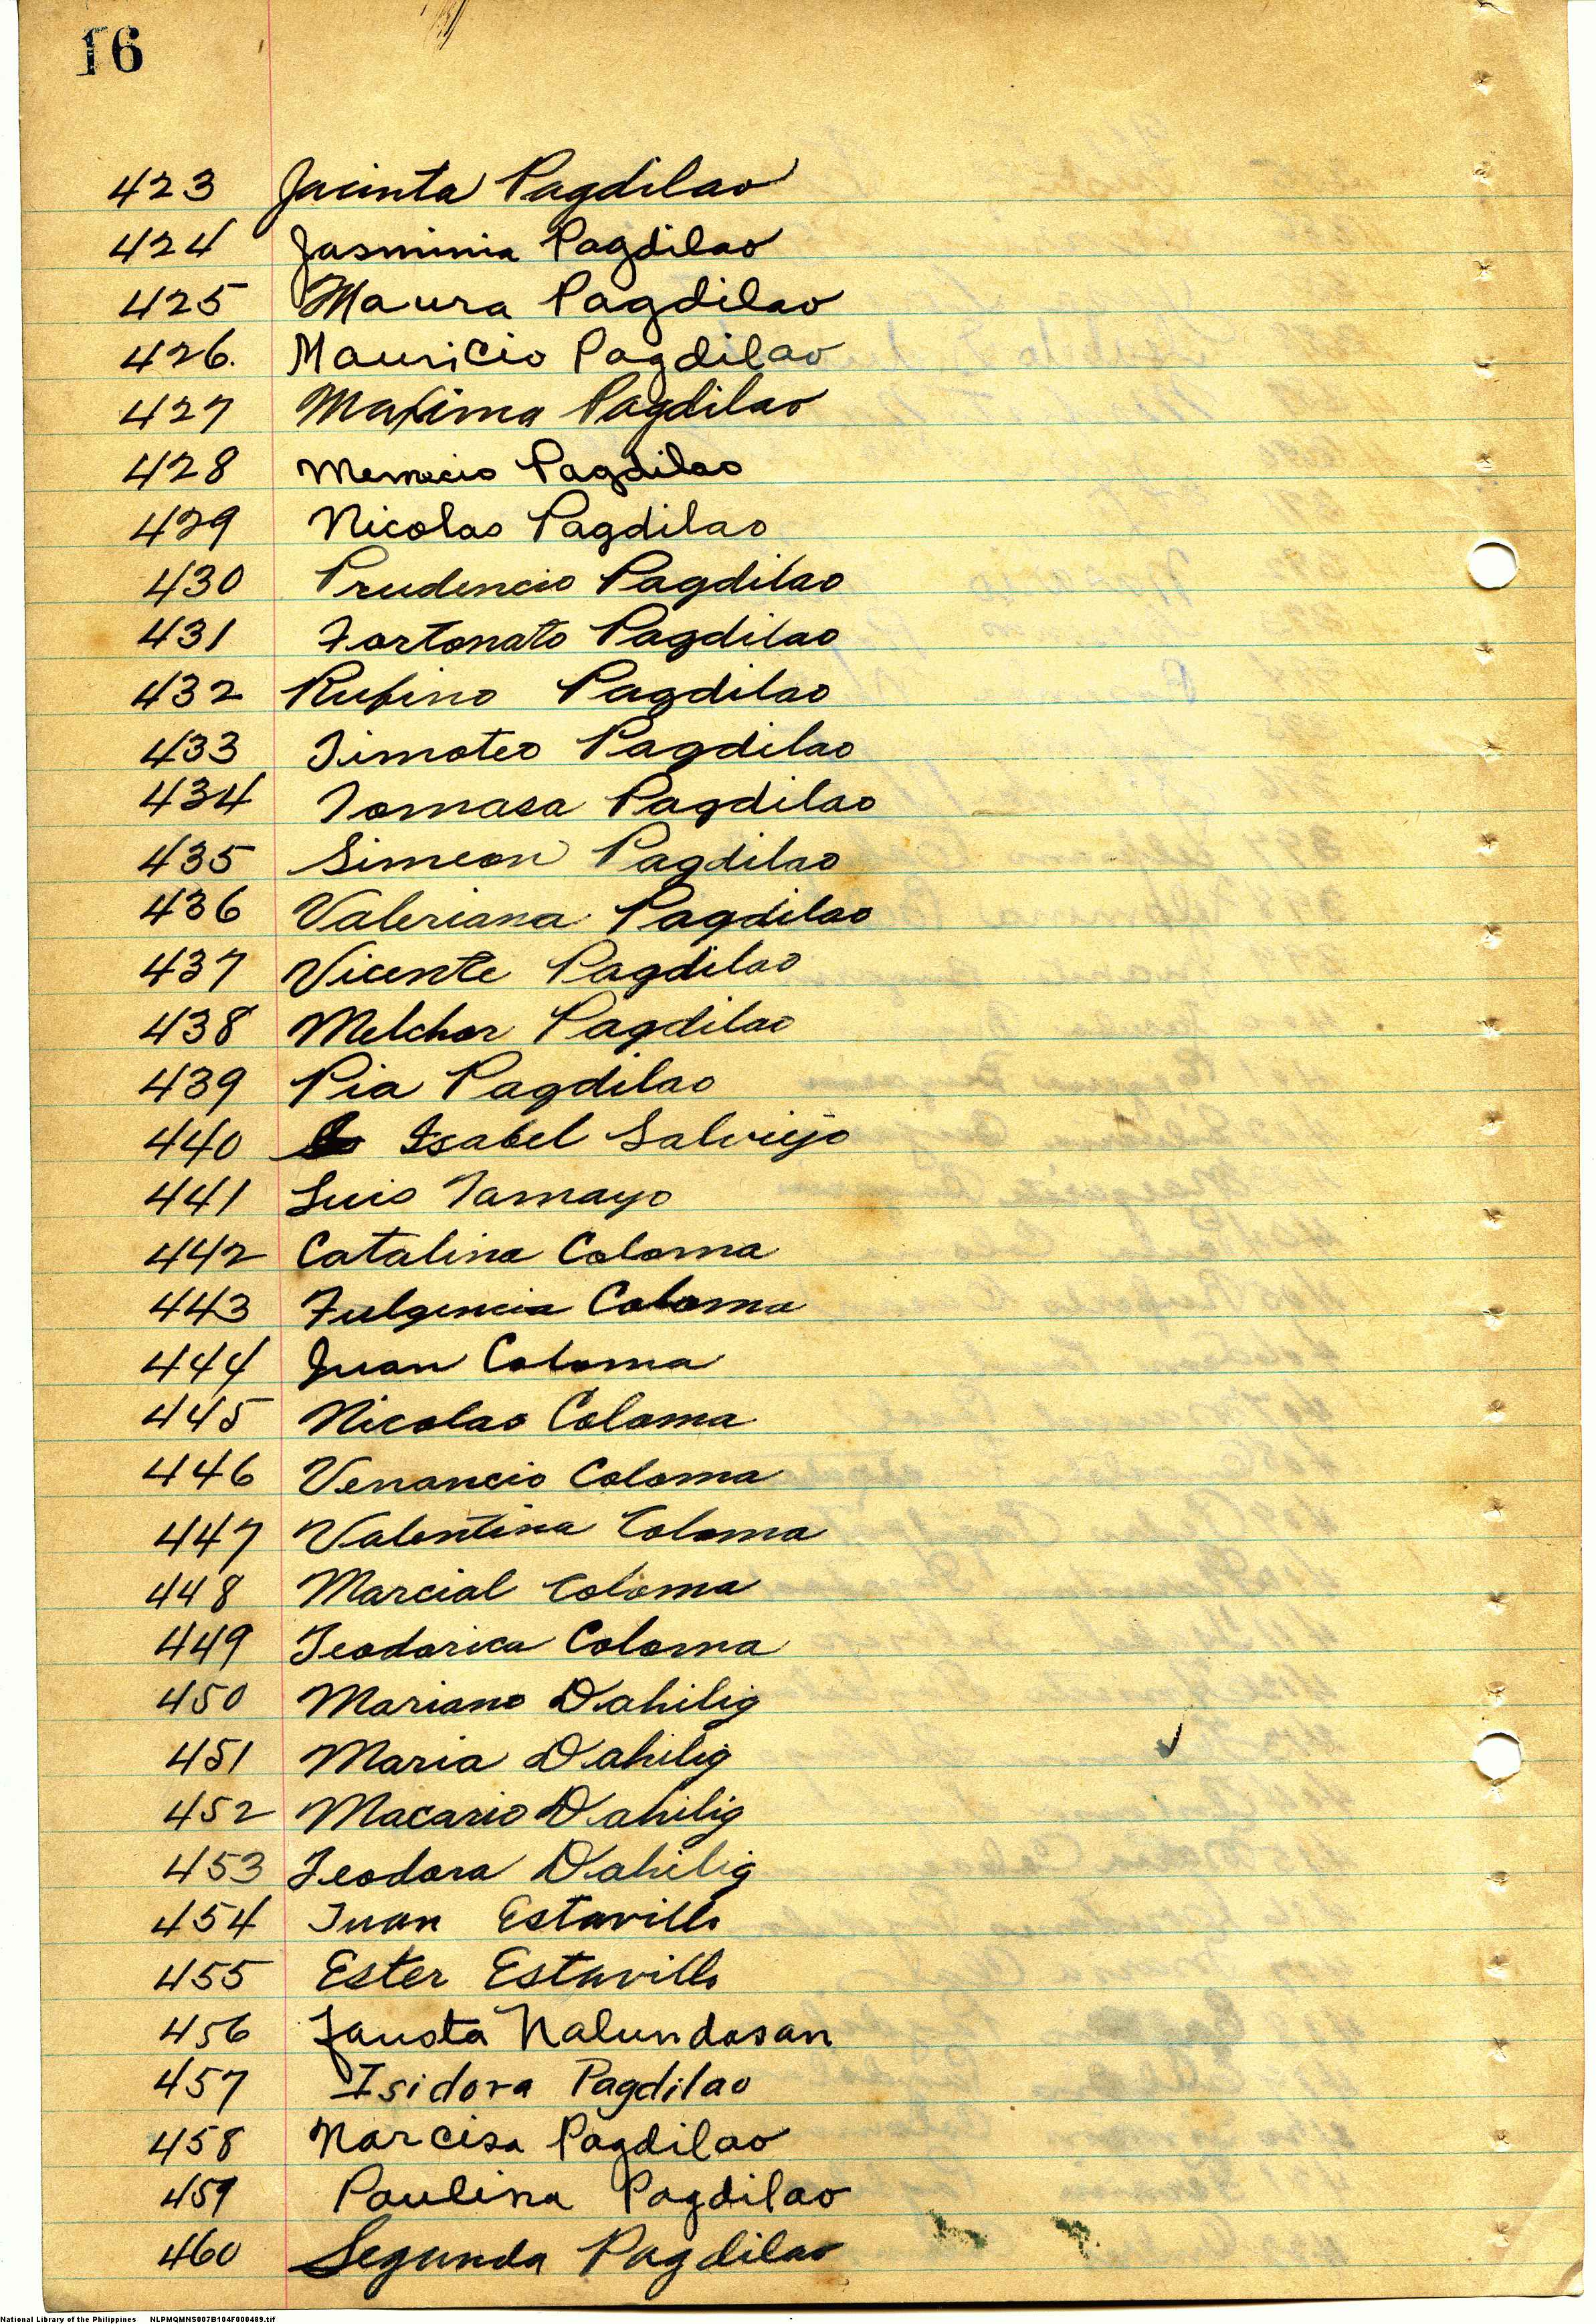 16
423 Jacinta Pagdilao
424 Jasminia Pagdilao
425 Maura Pagdilao
426. Mauricio Pagdilao
427 Maxima Pagdilao
428 Pagdilao
429 Nicolas Pagdilao
430 Prudencio Pagdilao
431 Fortonato Pagdilao
432 Rufino Pagdilao
433 Timoteo Pagdilao
434 Tomasa Pagdilao
435 Simeon Pagdilao
436 Valeriana Pagdilao
437 Vicente Pagdilao
438 Melchor Pagdilao
439 Pia Pagdilao
440 Isabel Salviejo
441 Luis Tamayo
442 Catalina Coloma
443 Fulgencia Coloma
444 Juan Coloma
445 Nicolas Coloma
446 Venancio Coloma
447 Valentina Coloma
448 Marcial Coloma
449 Teodorica Coloma
450 Mariano Dahilig
451 Maria Dahilig
452 Macario Dahilig
453 Teodora Dahilig
454 Juan Estavillo
455 Ester Estavillo
456 Fausta Nalundasan
457 Isidora Pagdilao
458 Narcisa Pagdilao
459 Paulina Pagdilao
460 Segunda Pagdilao
National Library of the Philippines NLPMQMNS007B104F000489.tif